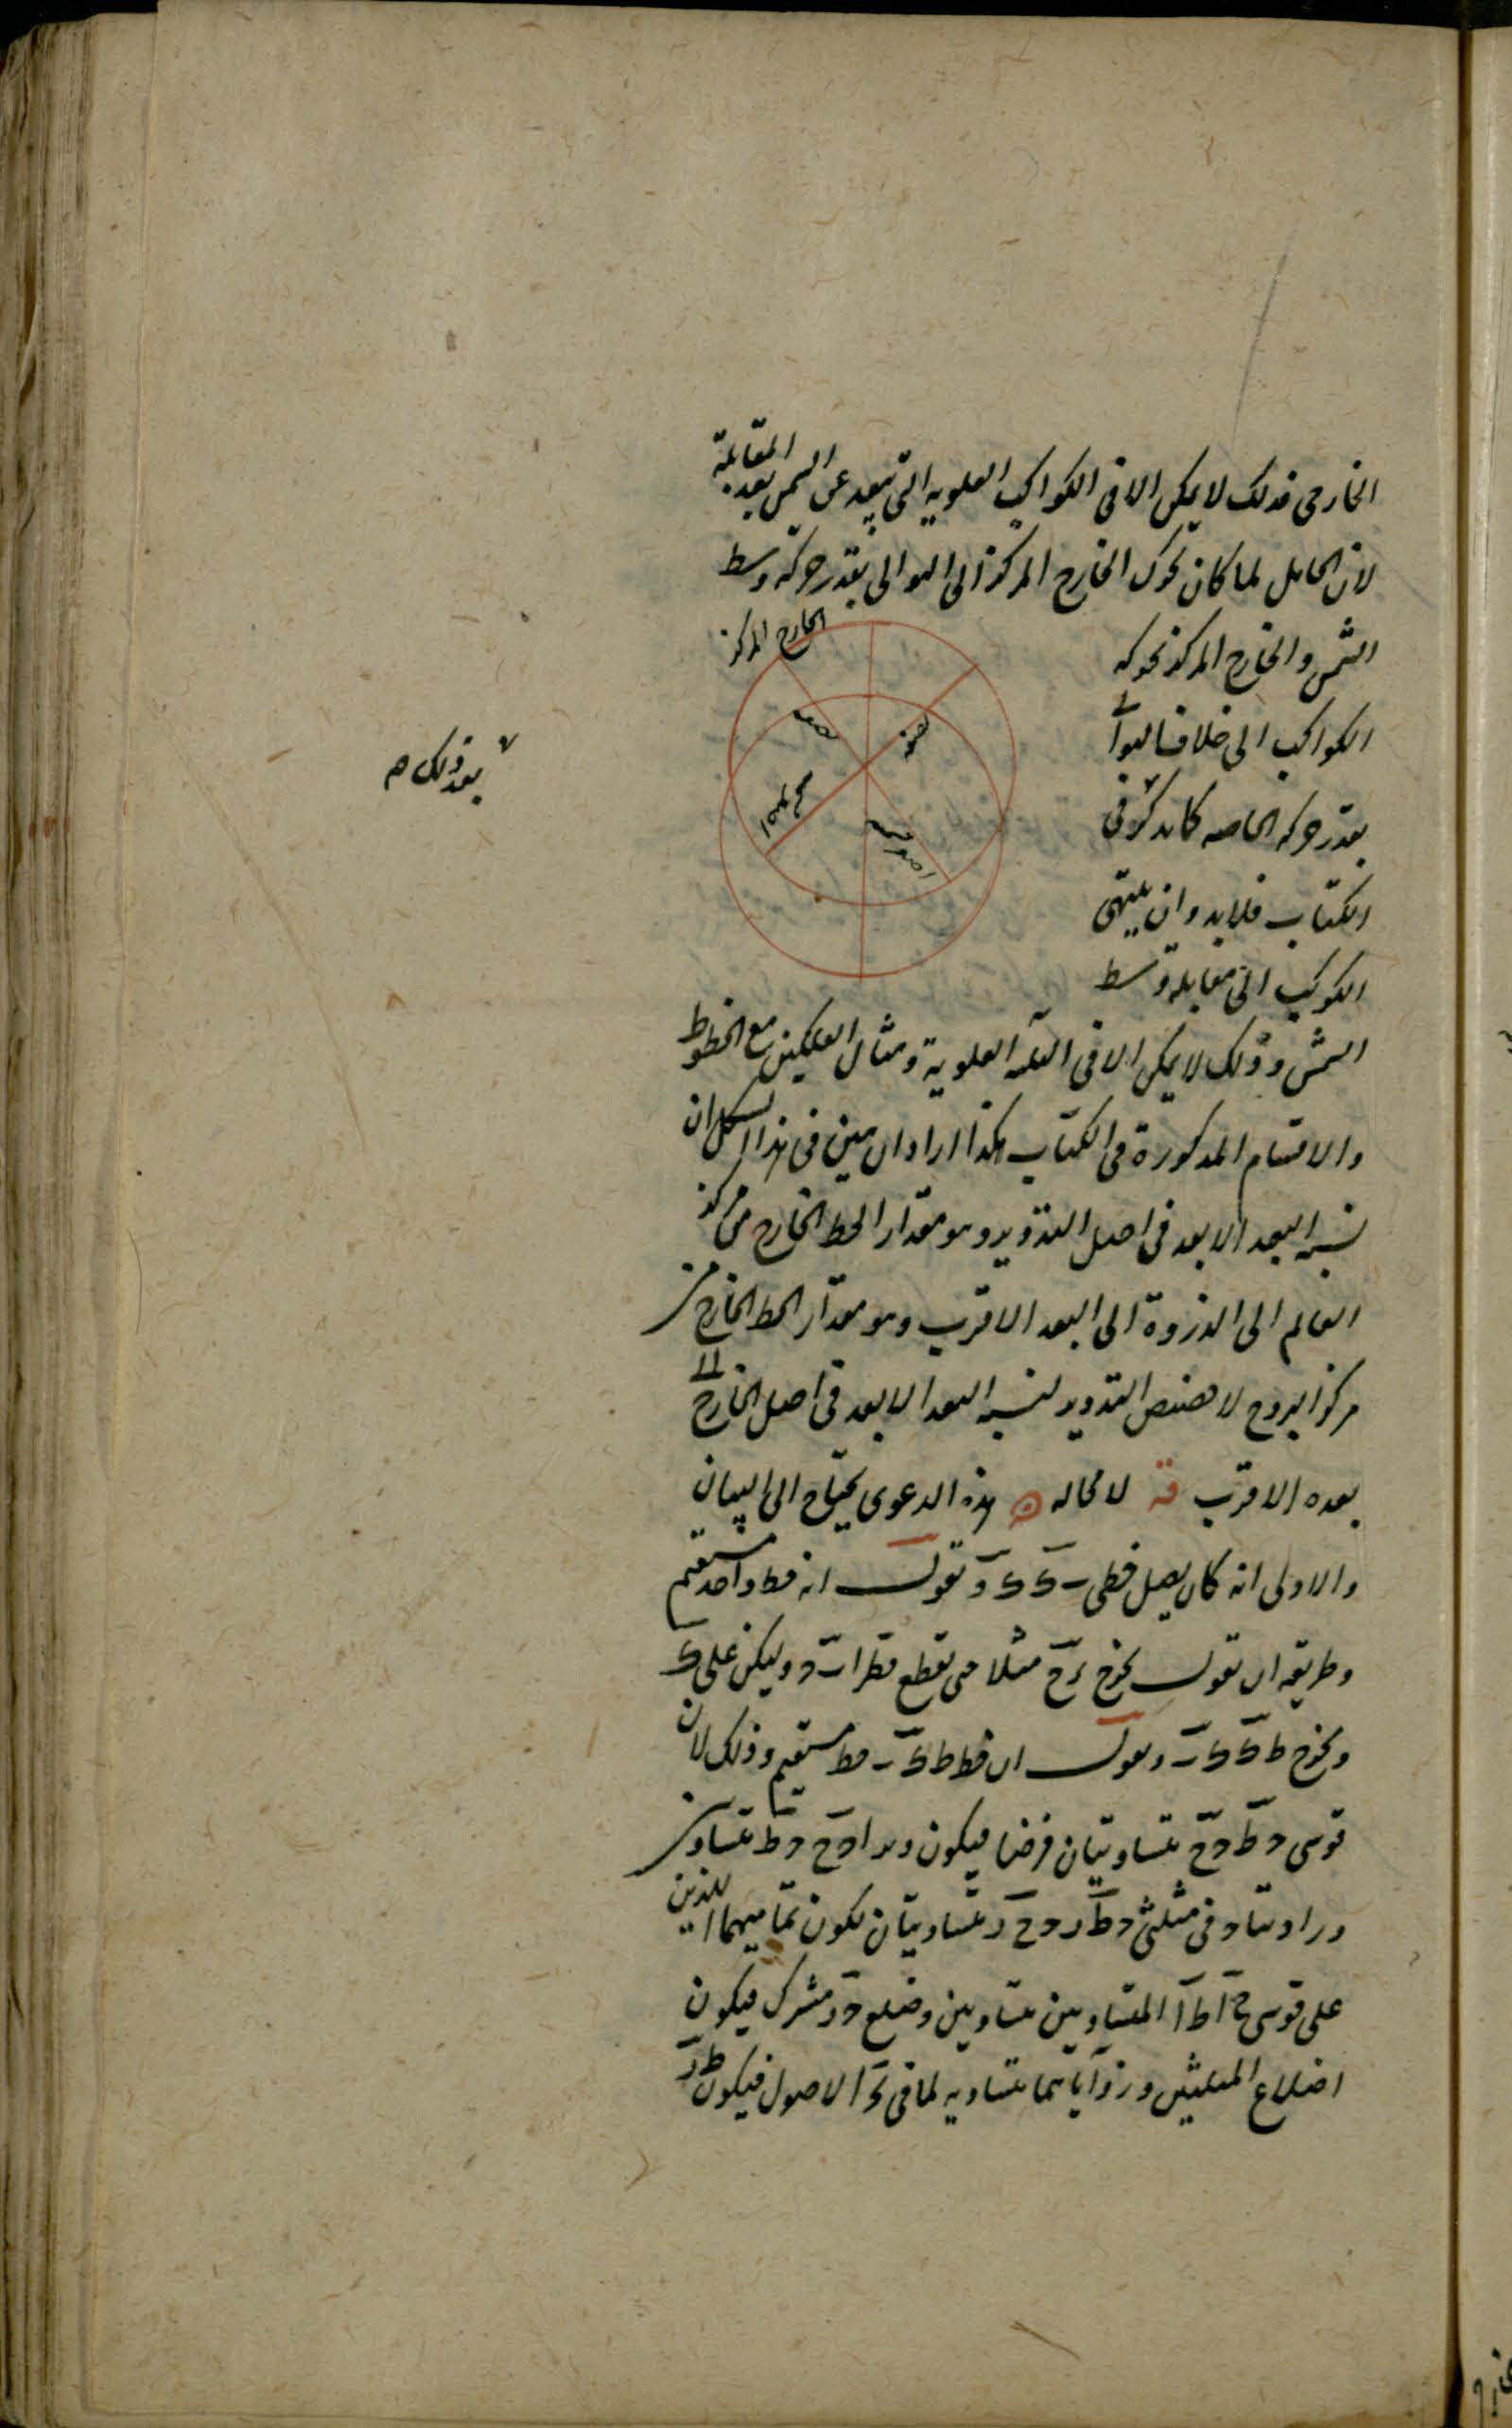 الخارجى فذلك لا يمكن الا فى الكواكب العلوية التى تبعد عن الشمس بعد المقابلة
لان الحامل لما كان يحرك الخارج المركز الى التوالى بقدر حركة وسط
الخارج المركز
الشمس والخارج المركز يحركه
الكواكب الى خلاف التوالى
بعد ذلك
بقدر حركة الخاصه كما يذكر فى
الكتاب فلا بد وان ينتهى
الكوكب الى مقابلة وسط
الشمس وذلك لا يمكن الا فى الثلثه العلوية ومثال الفلكين مع الخطوط
والاقسام المذكورة فى الكتاب هكذا اراد ان يبين فى هذا الشكل ان
نسبه البعد الابعد فى اصل التدوير وهو مقدار الخط الخارج من مركز
العالم الى الذروة الى البعد الاقرب وهو مقدار الخط الخارج من
مركز البروج لا حضيض التدوير لنسبه البعد الابعد فى اصل الخارج الى
بعده الاقرب قه لا محاله ه هذه الدعوى يحتاج الى البيان
والاولى انه كان يصل خطى د ك ك و نقول انه خط واحد مستقيم
وطريقه ان نقول يخرج ر ح مثلا حتى يقطع قطر ا د وليكن على ك
ونخرج ط ك ك ر ونقول ان خط ط ك ر خط مستقيم وذلك لان
قوسى د ط د ح متساويتان فرضا فيكون وترا د ح د ط متساويين
وزاويتا د فى مثلثى د ط ر د ح ر متساويتان لكون تماميهما اللذين
على قوسى ح ا ط ا المتساويين متساويين وضلع د ر مشترك فيكون
اضلاع المثلثين وزواياهما متساويه لما فى ا الاصول فيكون ط ر